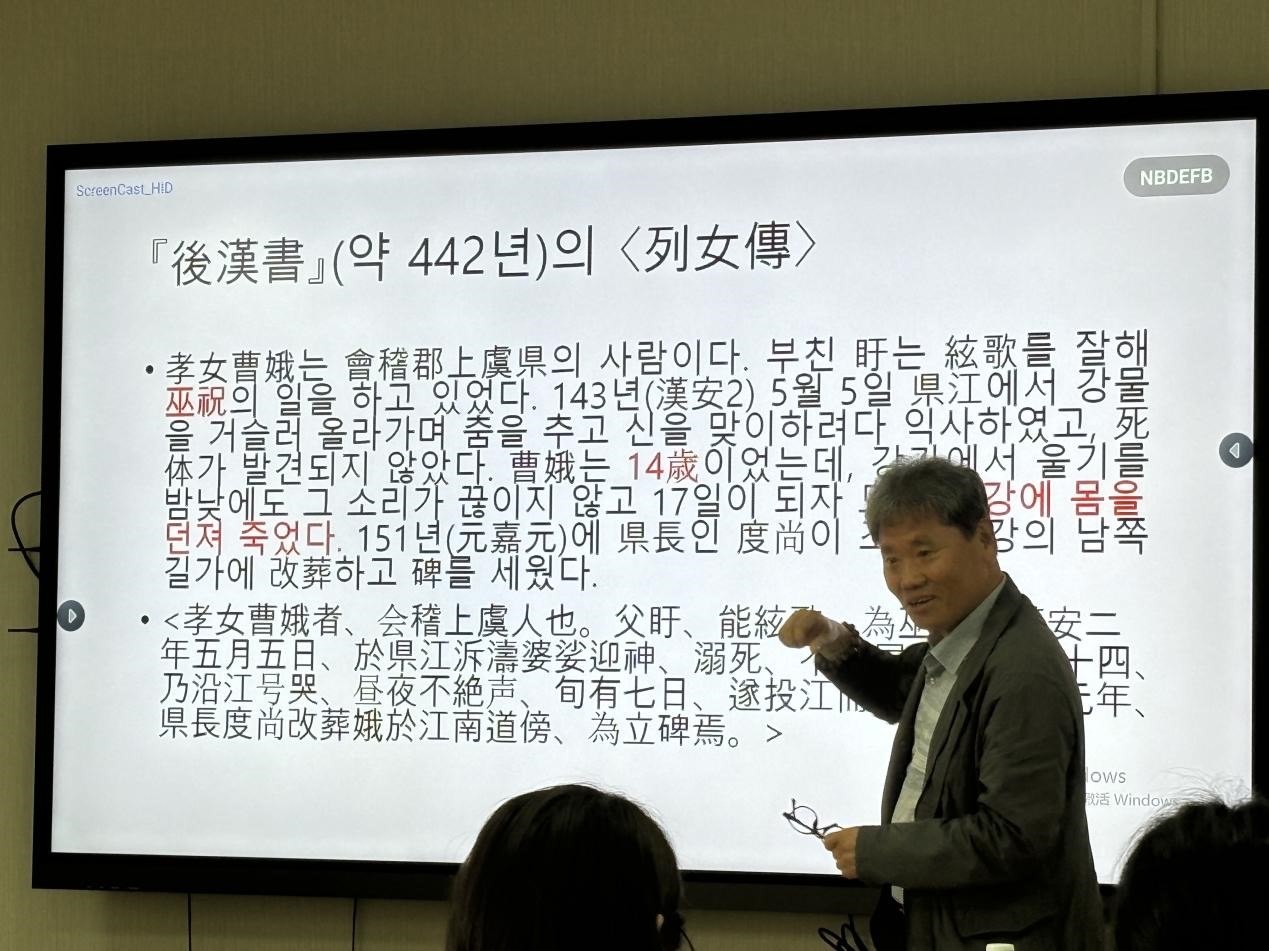 ScreenCast_HID
NBDEFB
『後漢書』(약 442년)의 〈列女傳〉
• 孝女曹娥는 會稽郡上虞県의 사람이다. 부친 盱는 絃歌를 잘해
巫祝의 일을 하고 있었다. 143년(漢安2) 5월 5일 県江에서 강물
을 거슬러 올라가며 춤을 추고 신을 맞이하려다 익사하였고, 死
体가 발견되지 않았다. 曹娥는 14歳이었는데, 강가에서 울기를
밤낮에도 그 소리가 끊이지 않고 17일이 되자 강에 몸을
던져 죽었다. 151년(元嘉元)에 県長인 度尚이 강의 남쪽
길가에 改葬하고 碑를 세웠다.
• <孝女曹娥者、会稽上虞人也。父盱、能絃 為巫 安二
年五月五日、於県江泝濤婆娑迎神、溺死、 十四、
乃沿江号哭、昼夜不絶声、旬有七日、遂投江 元年、
県長度尚改葬娥於江南道傍、為立碑焉。>
激活 Windows